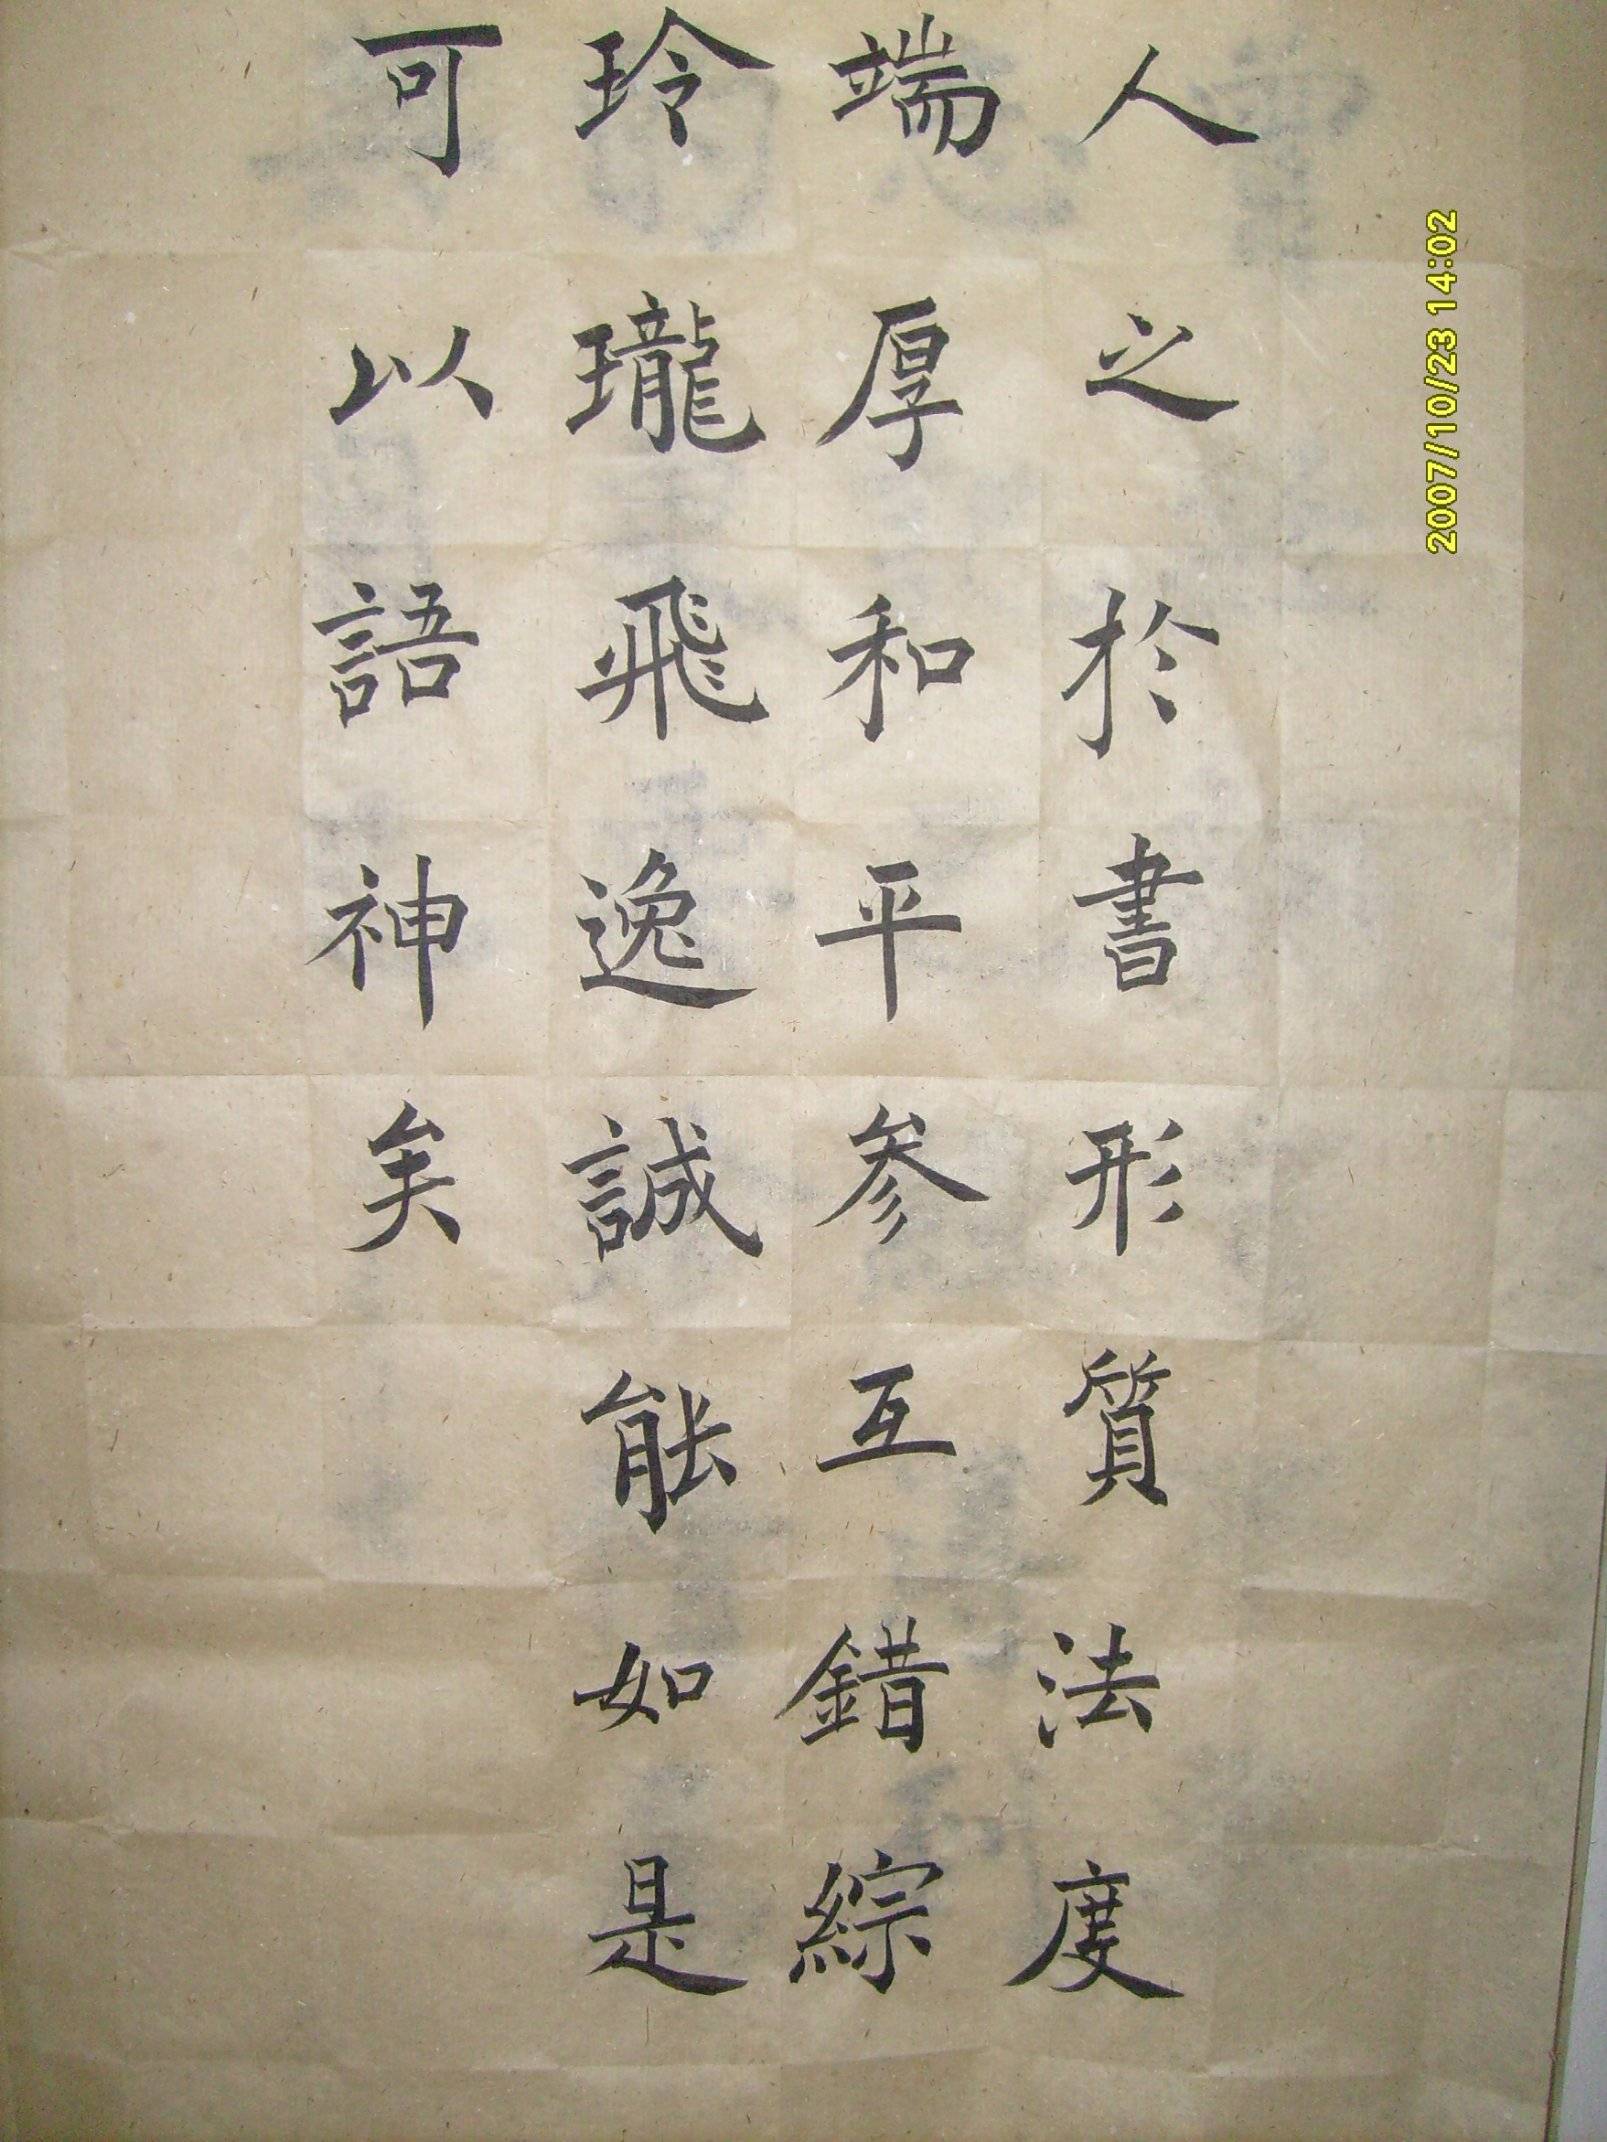 人之於書形質法度
端厚和平参互錯綜
玲瓏飛逸誠能如是
可以語神矣
2007/10/23 14:02